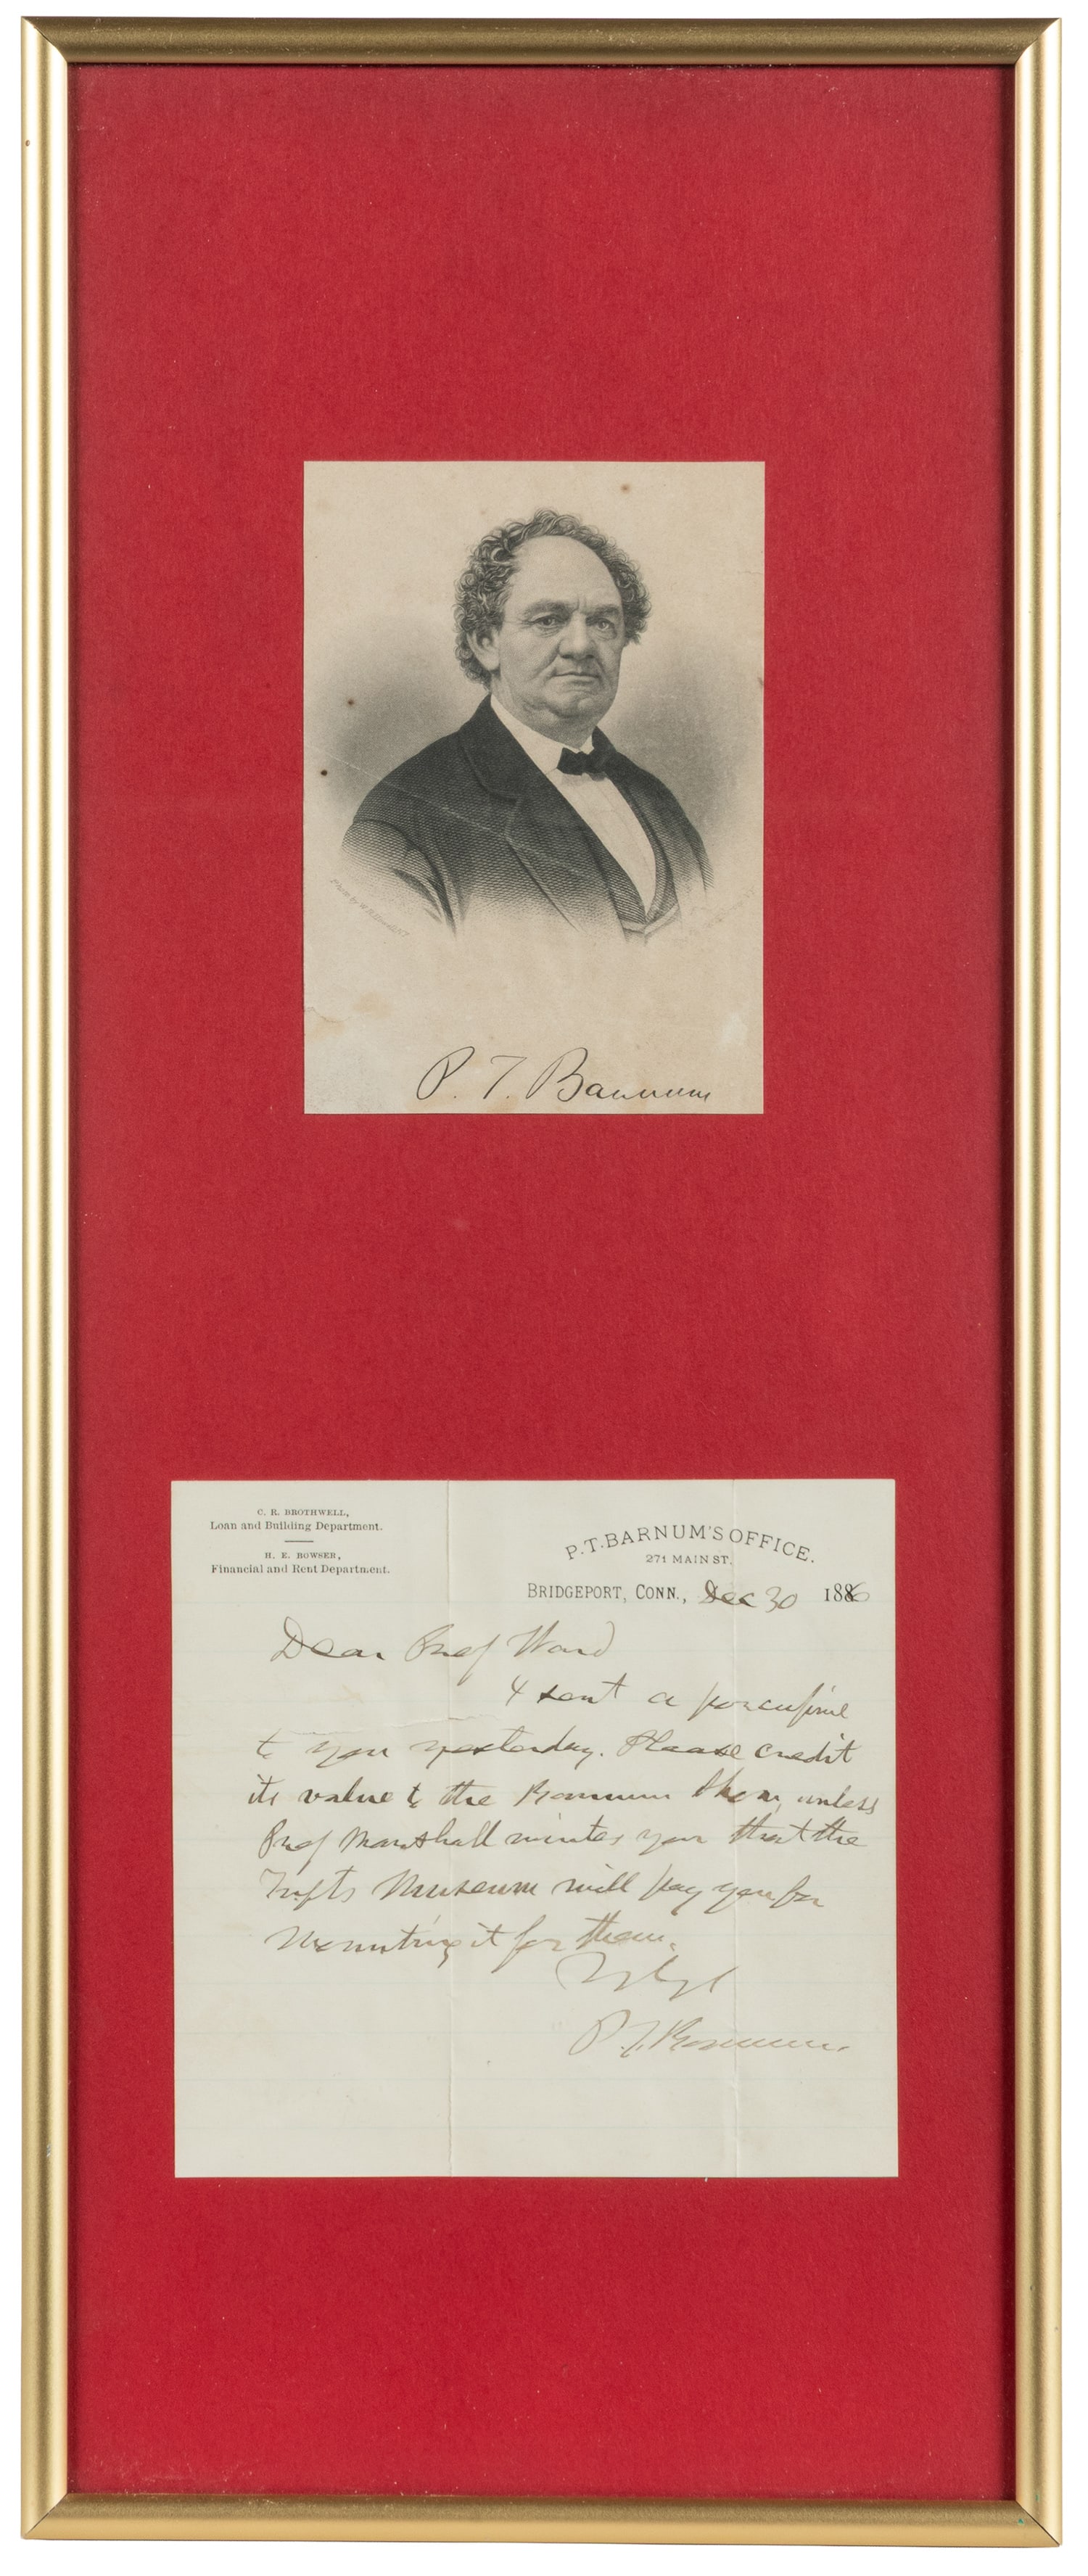 P. T. Barnum
C. R. BROTHWELL,
Loan and Building Department.
H. E. BOWSER,
Financial and Rent Department.
P. T. BARNUM'S OFFICE.
271 MAIN ST.
BRIDGEPORT, CONN., Dec 30 1886
Dear Prof Ward
I sent a porcupine
to you yesterday. Please credit
its value to the Barnum Show, unless
Prof Marshall writes you that the
Tufts Museum will pay you for
Mounting it for them.
P. T. Barnum